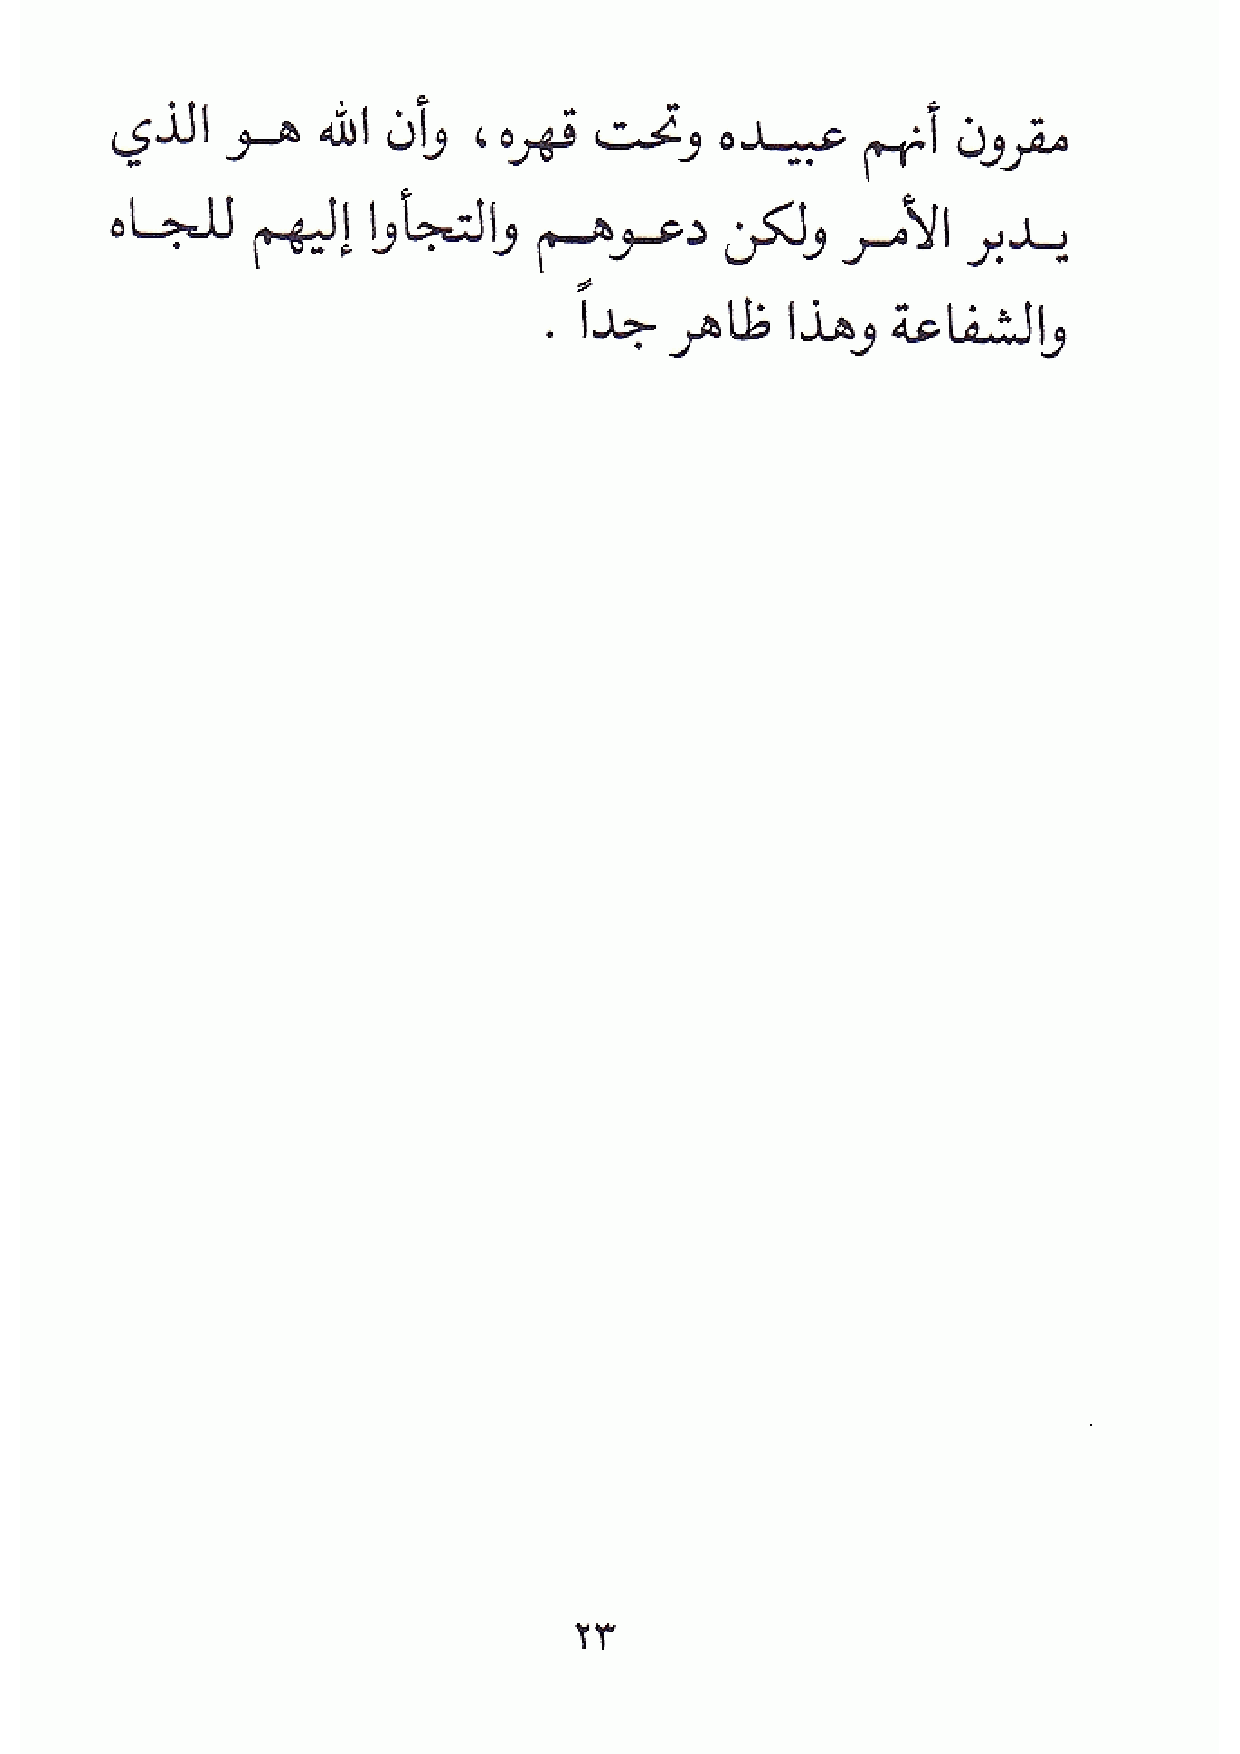 مقرون أنهم عبيده وتحت قهره ، وأن الله هو الذي
يدبر الأمر ولكن دعوهم والتجأوا إليهم للجاه
والشفاعة وهذا ظاهر جداً .
٢٣